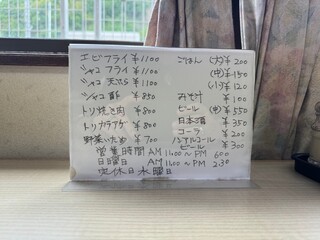 エビフライ ¥1100
シャコフライ ¥1100
シャコ天ぷら ¥1100
シャコ酢 ¥850
トリ焼き肉 ¥800
トリカラアゲ ¥800
野菜いため ¥700
ごはん (大) ¥200
(中) ¥150
(小) ¥120
みそ汁 ¥100
ビール (中) ¥550
日本酒 ¥350
コーラ ¥200
ノンアルコール
ビール ¥300
営業時間 AM 11:00〜PM 6:00
日曜日 AM 11:00〜PM 2:30
定休日 水曜日